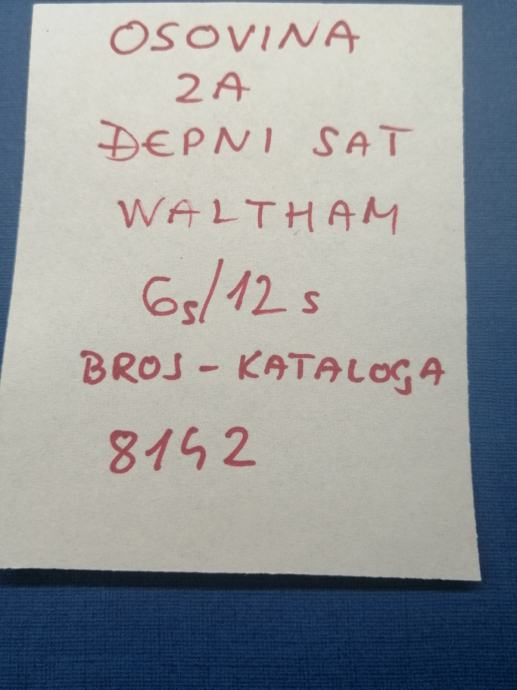 OSOVINA
ZA
ĐEPNI SAT
WALTHAM
6s/12s
BROJ - KATALOGA
8142